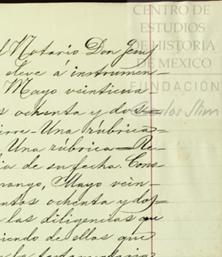 CENTRO DE
ESTUDIOS
DE HISTORIA
DE MEXICO
FUNDACIÓN
Carlos Slim
l Notario Don Jesus
eleve á instrumen-
Mayo veinticin
s ochenta y dos=
irre-Una rúbrica=
Una rúbrica= Ra
ia de su fecha. Cons
rango, Mayo vein
ntos ochenta y dos
las diligencias que
iendo de ellas que